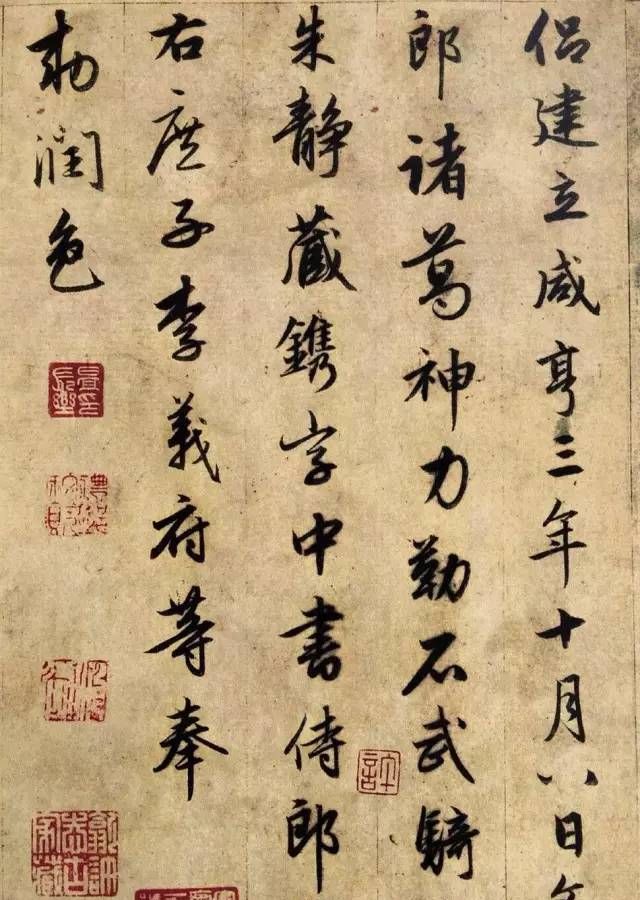 侣建立咸亨三年十月八日
郎諸葛神力勒石武騎
朱静藏鐫字中書侍郎
右庶子李義府等奉
勑潤色